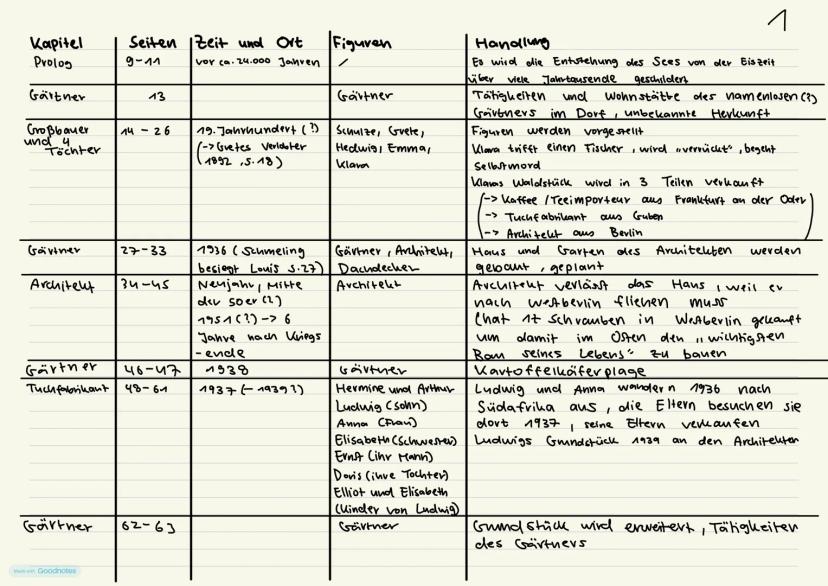 1
Kapitel Seiten Zeit und Ort Figuren Handlung
Prolog 9-11 vor ca. 24.000 Jahren / Es wird die Entstehung des Sees von der Eiszeit
über viele Jahrtausende geschildert
Gärtner 13 Gärtner Tätigkeiten und Wohnstätte des namenlosen(?)
Gärtners im Dorf, unbekannte Herkunft
Großbauer und 4 Töchter 14-26 19. Jahrhundert (?)
(-> Gretes Verlobter
1892, S.18)
Schulze, Grete,
Hedwig, Emma,
Klara
Figuren werden vorgestellt
Klara trifft einen Fischer, wird "verrückt", begeht
Selbstmord
Klaras Waldstück wird in 3 Teilen verkauft
(-> Kaffee/Teeimporteur aus Frankfurt an der Oder)
-> Tuchfabrikant aus Guben
-> Architekt aus Berlin
Gärtner 27-33 1936 (Schmeling
besiegt Louis S.27)
Gärtner, Architekt,
Dachdecker
Haus und Garten des Architekten werden
gebaut, geplant
Architekt 34-45 Neujahr, Mitte
der 50er(?)
1951(?) -> 6
Jahre nach Kriegs
-ende
Architekt
Architekt verlässt das Haus, weil er
nach Westberlin fliehen muss
(hat 1t Schrauben in Westberlin gekauft
um damit im Osten den "wichtigsten
Bau seines Lebens" zu bauen
Gärtner 46-47 1938 Gärtner Kartoffelkäferplage
Tuchfabrikant 48-61 1937 (-1939?)
Hermine und Arthur
Ludwig (Sohn)
Anna (Frau)
Elisabeth (Schwester)
Ernst (ihr Mann)
Doris (ihre Tochter)
Elliot und Elisabeth
(Kinder von Ludwig)
Ludwig und Anna wandern 1936 nach
Südafrika aus, die Eltern besuchen sie
dort 1937, seine Eltern verkaufen
Ludwigs Grundstück 1939 an den Architekten
Gärtner 62-63 Gärtner Grundstück wird erweitert, Tätigkeiten
des Gärtners
Made with Goodnotes